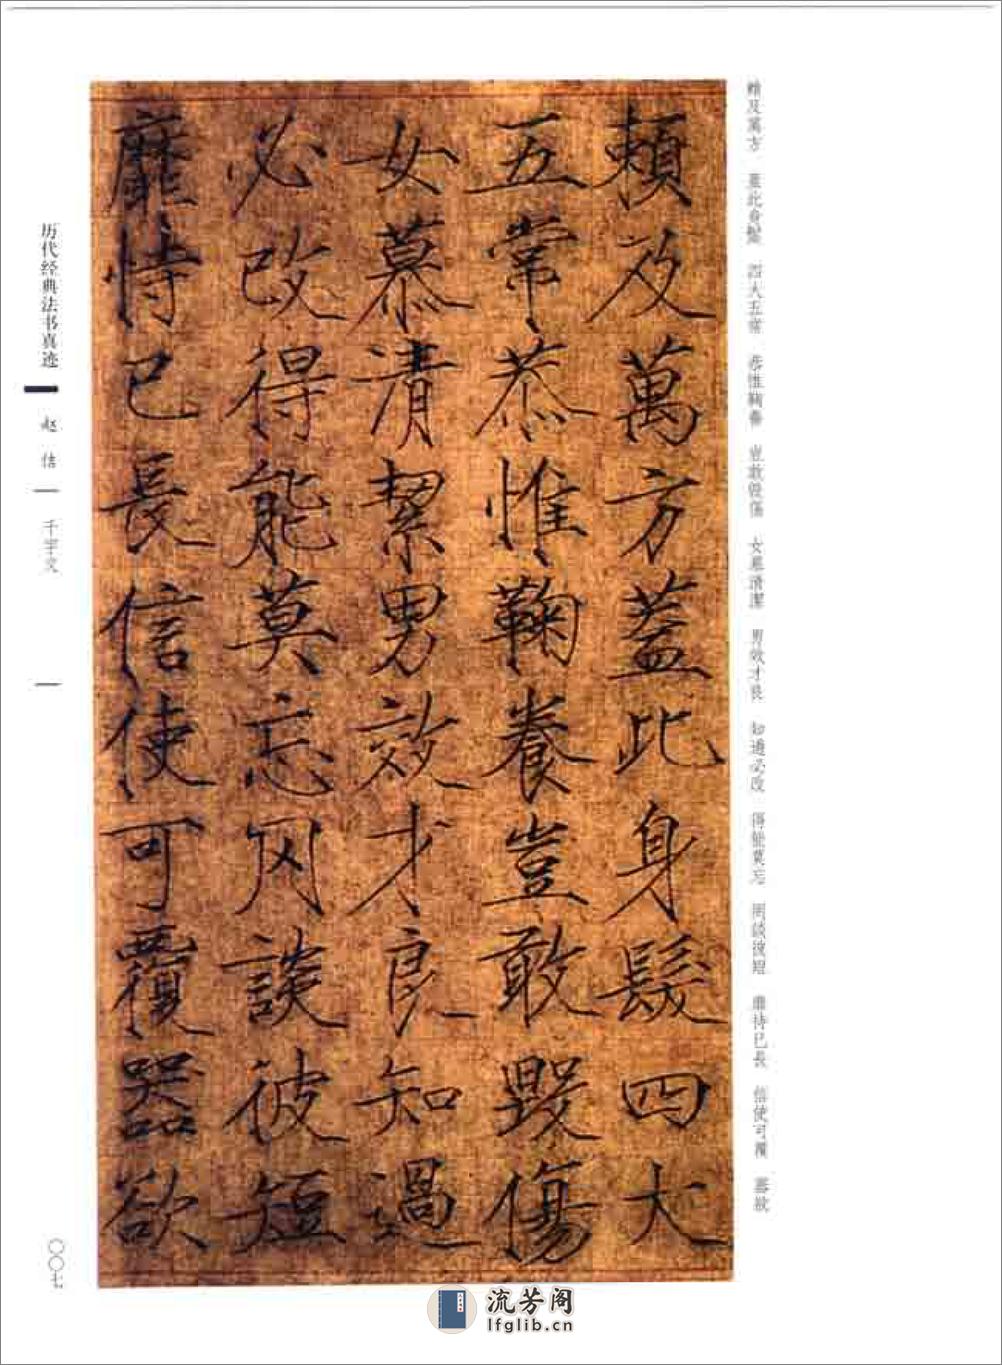 賴及萬方　蓋此身髮　四大五常　恭惟鞠養　豈敢毀傷　女慕清潔　男效才良　知過必改　得能莫忘　罔談彼短　靡恃已長　信使可覆　器欲
賴及萬方蓋此身髮四大
五常恭惟鞠養豈敢毀傷
女慕清絜男效才良知過
必改得能莫忘罔談彼短
靡恃已長信使可覆器欲
历代经典法书真迹
赵佶
千字文
〇〇七
流芳阁
lfglib.cn